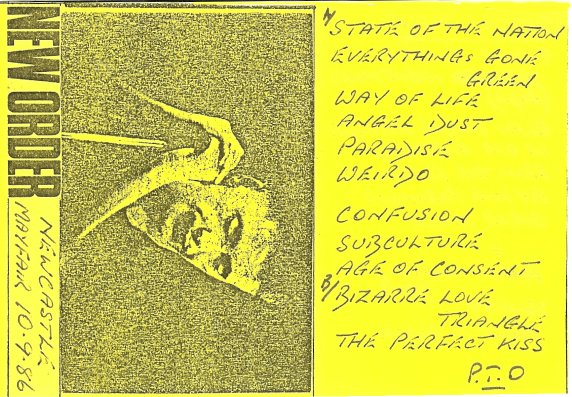 NEW ORDER
NEWCASTLE
MAYFAIR 10.9.86
A/
STATE OF THE NATION
EVERYTHINGS GONE
GREEN
WAY OF LIFE
ANGEL DUST
PARADISE
WEIRDO
CONFUSION
SUBCULTURE
AGE OF CONSENT
B/
BIZARRE LOVE
TRIANGLE
THE PERFECT KISS
P.T.O